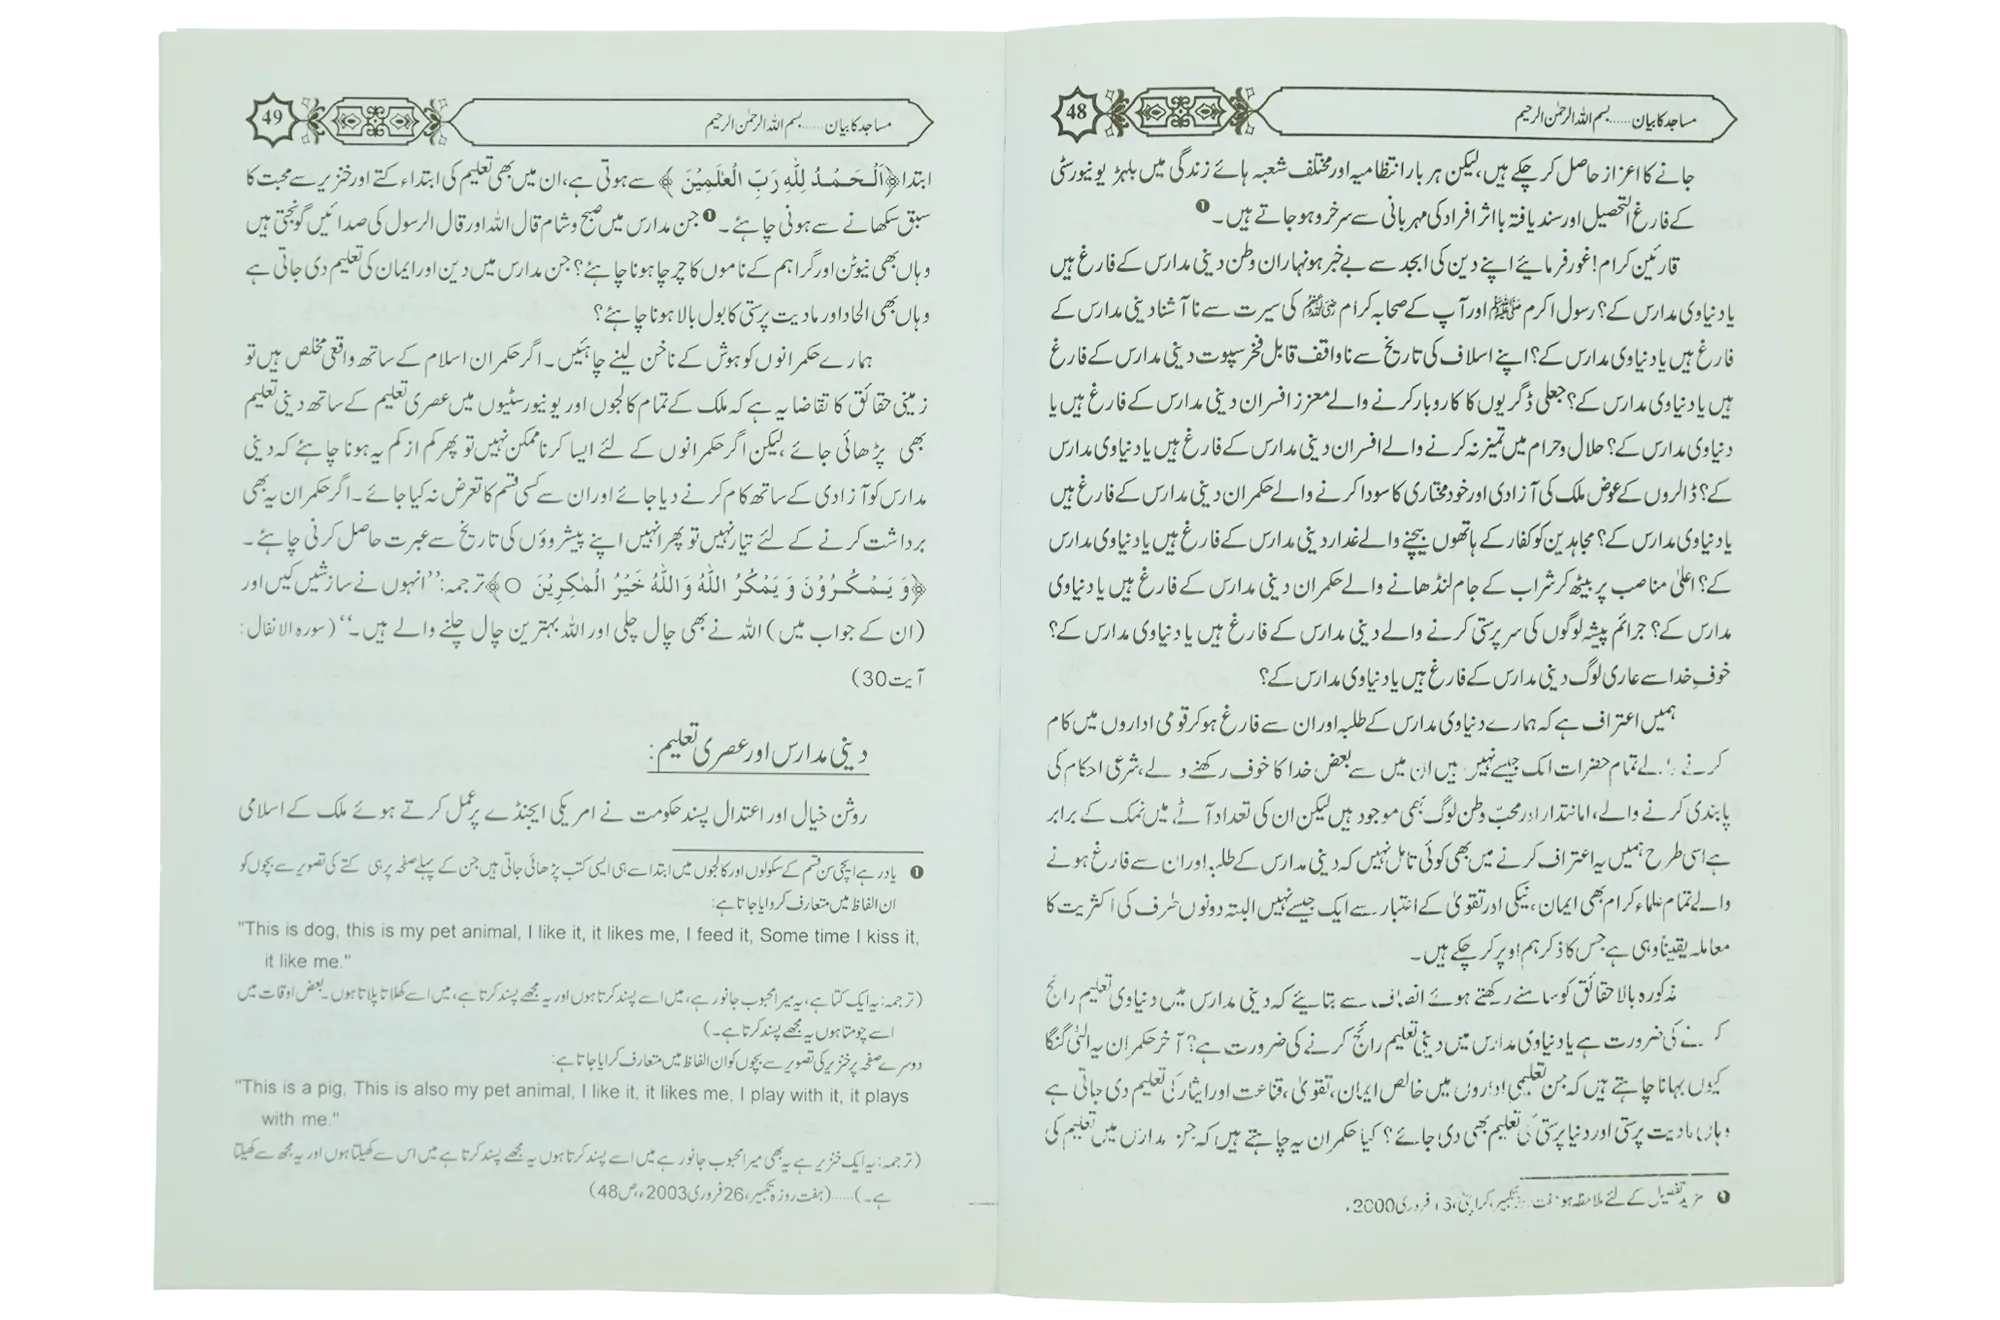 مساجد کا بیان......بسم اللہ الرحمٰن الرحیم
48
جانے کا اعزاز حاصل کر چکے ہیں، لیکن ہر بار انتظامیہ اور مختلف شعبہ ہائے زندگی میں بلہڑ یونیورسٹی
کے فارغ التحصیل اور سند یافتہ با اثر افراد کی مہربانی سے سرخرو ہو جاتے ہیں۔❶
قارئین کرام! غور فرمائیے اپنے دین کی ابجد سے بے خبر ہونہاران وطن دینی مدارس کے فارغ ہیں
یا دنیاوی مدارس کے؟ رسول اکرم ﷺ اور آپ کے صحابہ کرام رضی اللہ عنہم کی سیرت سے نا آشنا دینی مدارس کے
فارغ ہیں یا دنیاوی مدارس کے؟ اپنے اسلاف کی تاریخ سے ناواقف قابل فخر سپوت دینی مدارس کے فارغ
ہیں یا دنیاوی مدارس کے؟ جعلی ڈگریوں کا کاروبار کرنے والے معزز افسران دینی مدارس کے فارغ ہیں یا
دنیاوی مدارس کے؟ حلال و حرام میں تمیز نہ کرنے والے افسران دینی مدارس کے فارغ ہیں یا دنیاوی مدارس
کے؟ ڈالروں کے عوض ملک کی آزادی اور خود مختاری کا سودا کرنے والے حکمران دینی مدارس کے فارغ ہیں
یا دنیاوی مدارس کے؟ مجاہدین کو کفار کے ہاتھوں بیچنے والے غدار دینی مدارس کے فارغ ہیں یا دنیاوی مدارس
کے؟ اعلیٰ مناصب پر بیٹھ کر شراب کے جام لنڈھانے والے حکمران دینی مدارس کے فارغ ہیں یا دنیاوی
مدارس کے؟ جرائم پیشہ لوگوں کی سر پرستی کرنے والے دینی مدارس کے فارغ ہیں یا دنیاوی مدارس کے؟
خوفِ خدا سے عاری لوگ دینی مدارس کے فارغ ہیں یا دنیاوی مدارس کے؟
ہمیں اعتراف ہے کہ ہمارے دنیاوی مدارس کے طلبہ اور ان سے فارغ ہو کر قومی اداروں میں کام
کرنے والے تمام حضرات ایک جیسے نہیں ہیں ان میں سے بعض خدا کا خوف رکھنے والے، شرعی احکام کی
پابندی کرنے والے، امانتدار اور محبّ وطن لوگ بھی موجود ہیں لیکن ان کی تعداد آٹے میں نمک کے برابر
ہے اسی طرح ہمیں یہ اعتراف کرنے میں بھی کوئی تامل نہیں کہ دینی مدارس کے طلبہ اور ان سے فارغ ہونے
والے تمام علماء کرام بھی ایمان، نیکی اور تقویٰ کے اعتبار سے ایک جیسے نہیں البتہ دونوں طرف کی اکثریت کا
معاملہ یقیناً وہی ہے جس کا ذکر ہم اوپر کر چکے ہیں۔
مذکورہ بالا حقائق کو سامنے رکھتے ہوئے انصاف سے بتائیے کہ دینی مدارس میں دنیاوی تعلیم رائج
کرنے کی ضرورت ہے یا دنیاوی مدارس میں دینی تعلیم رائج کرنے کی ضرورت ہے؟ آخر حکمران یہ الٹی گنگا
کیوں بہانا چاہتے ہیں کہ جن تعلیمی اداروں میں خالص ایمان، تقویٰ، قناعت اور ایثار کی تعلیم دی جاتی ہے
وہاں مادیت پرستی اور دنیا پرستی کی تعلیم بھی دی جائے؟ کیا حکمران یہ چاہتے ہیں کہ جن مدارس میں تعلیم کی
❶ مزید تفصیل کے لئے ملاحظہ ہو ہفت روزہ تکبیر، کراچی، فروری 2000ء
مساجد کا بیان......بسم اللہ الرحمٰن الرحیم
49
ابتدا ﴿اَلْحَمْدُ لِلّٰهِ رَبِّ الْعٰلَمِيْنَ﴾ سے ہوتی ہے، ان میں بھی تعلیم کی ابتداء کتے اور خنزیر سے محبت کا
سبق سکھانے سے ہونی چاہئے۔❶ جن مدارس میں صبح و شام قال اللہ اور قال الرسول کی صدائیں گونجتی ہیں
وہاں بھی نیوٹن اور گراہم کے ناموں کا چرچا ہونا چاہئے؟ جن مدارس میں دین اور ایمان کی تعلیم دی جاتی ہے
وہاں بھی الحاد اور مادیت پرستی کا بول بالا ہونا چاہئے؟
ہمارے حکمرانوں کو ہوش کے ناخن لینے چاہئیں۔ اگر حکمران اسلام کے ساتھ واقعی مخلص ہیں تو
زمینی حقائق کا تقاضا یہ ہے کہ ملک کے تمام کالجوں اور یونیورسٹیوں میں عصری تعلیم کے ساتھ دینی تعلیم
بھی پڑھائی جائے، لیکن اگر حکمرانوں کے لئے ایسا کرنا ممکن نہیں تو پھر کم از کم یہ ہونا چاہئے کہ دینی
مدارس کو آزادی کے ساتھ کام کرنے دیا جائے اور ان سے کسی قسم کا تعرض نہ کیا جائے۔ اگر حکمران یہ بھی
برداشت کرنے کے لئے تیار نہیں تو پھر انہیں اپنے پیشروؤں کی تاریخ سے عبرت حاصل کرنی چاہئے۔
﴿وَ يَمْكُرُوْنَ وَ يَمْكُرُ اللّٰهُ وَاللّٰهُ خَيْرُ الْمٰكِرِيْنَ ○﴾ ترجمہ: ’’انہوں نے سازشیں کیں اور
(ان کے جواب میں) اللہ نے بھی چال چلی اور اللہ بہترین چال چلنے والے ہیں۔‘‘ (سورہ الانفال:
آیت 30)
دینی مدارس اور عصری تعلیم:
روشن خیال اور اعتدال پسند حکومت نے امریکی ایجنڈے پر عمل کرتے ہوئے ملک کے اسلامی
❶ یاد رہے ایچی سن قسم کے سکولوں اور کالجوں میں ابتدا سے ہی ایسی کتب پڑھائی جاتی ہیں جن کے پہلے صفحہ پر ہی کتے کی تصویر سے بچوں کو
ان الفاظ میں متعارف کروایا جاتا ہے:
"This is dog, this is my pet animal, I like it, it likes me, I feed it, Some time I kiss it,
it like me."
(ترجمہ: یہ ایک کتا ہے، یہ میرا محبوب جانور ہے، میں اسے پسند کرتا ہوں اور یہ مجھے پسند کرتا ہے، میں اسے کھلاتا پلاتا ہوں۔ بعض اوقات میں
اسے چومتا ہوں یہ مجھے پسند کرتا ہے۔)
دوسرے صفحہ پر خنزیر کی تصویر سے بچوں کو ان الفاظ میں متعارف کرایا جاتا ہے:
"This is a pig, This is also my pet animal, I like it, it likes me, I play with it, it plays
with me."
(ترجمہ: یہ ایک خنزیر ہے یہ بھی میرا محبوب جانور ہے میں اسے پسند کرتا ہوں یہ مجھے پسند کرتا ہے میں اس سے کھیلتا ہوں اور یہ مجھ سے کھیلتا
ہے۔)......(ہفت روزہ تکبیر، 26 فروری 2003ء، ص 48)